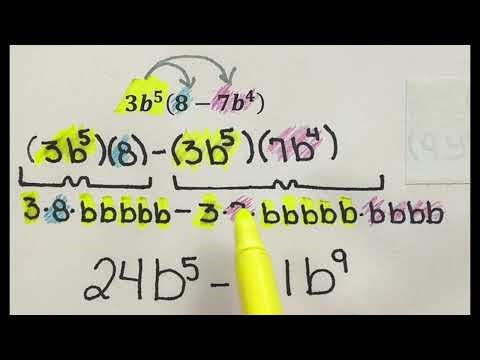 3b⁵(8 − 7b⁴)
(3b⁵)(8) − (3b⁵)(7b⁴)
3·8·bbbbb − 3· ·bbbbb·bbbb
24b⁵ − 1b⁹